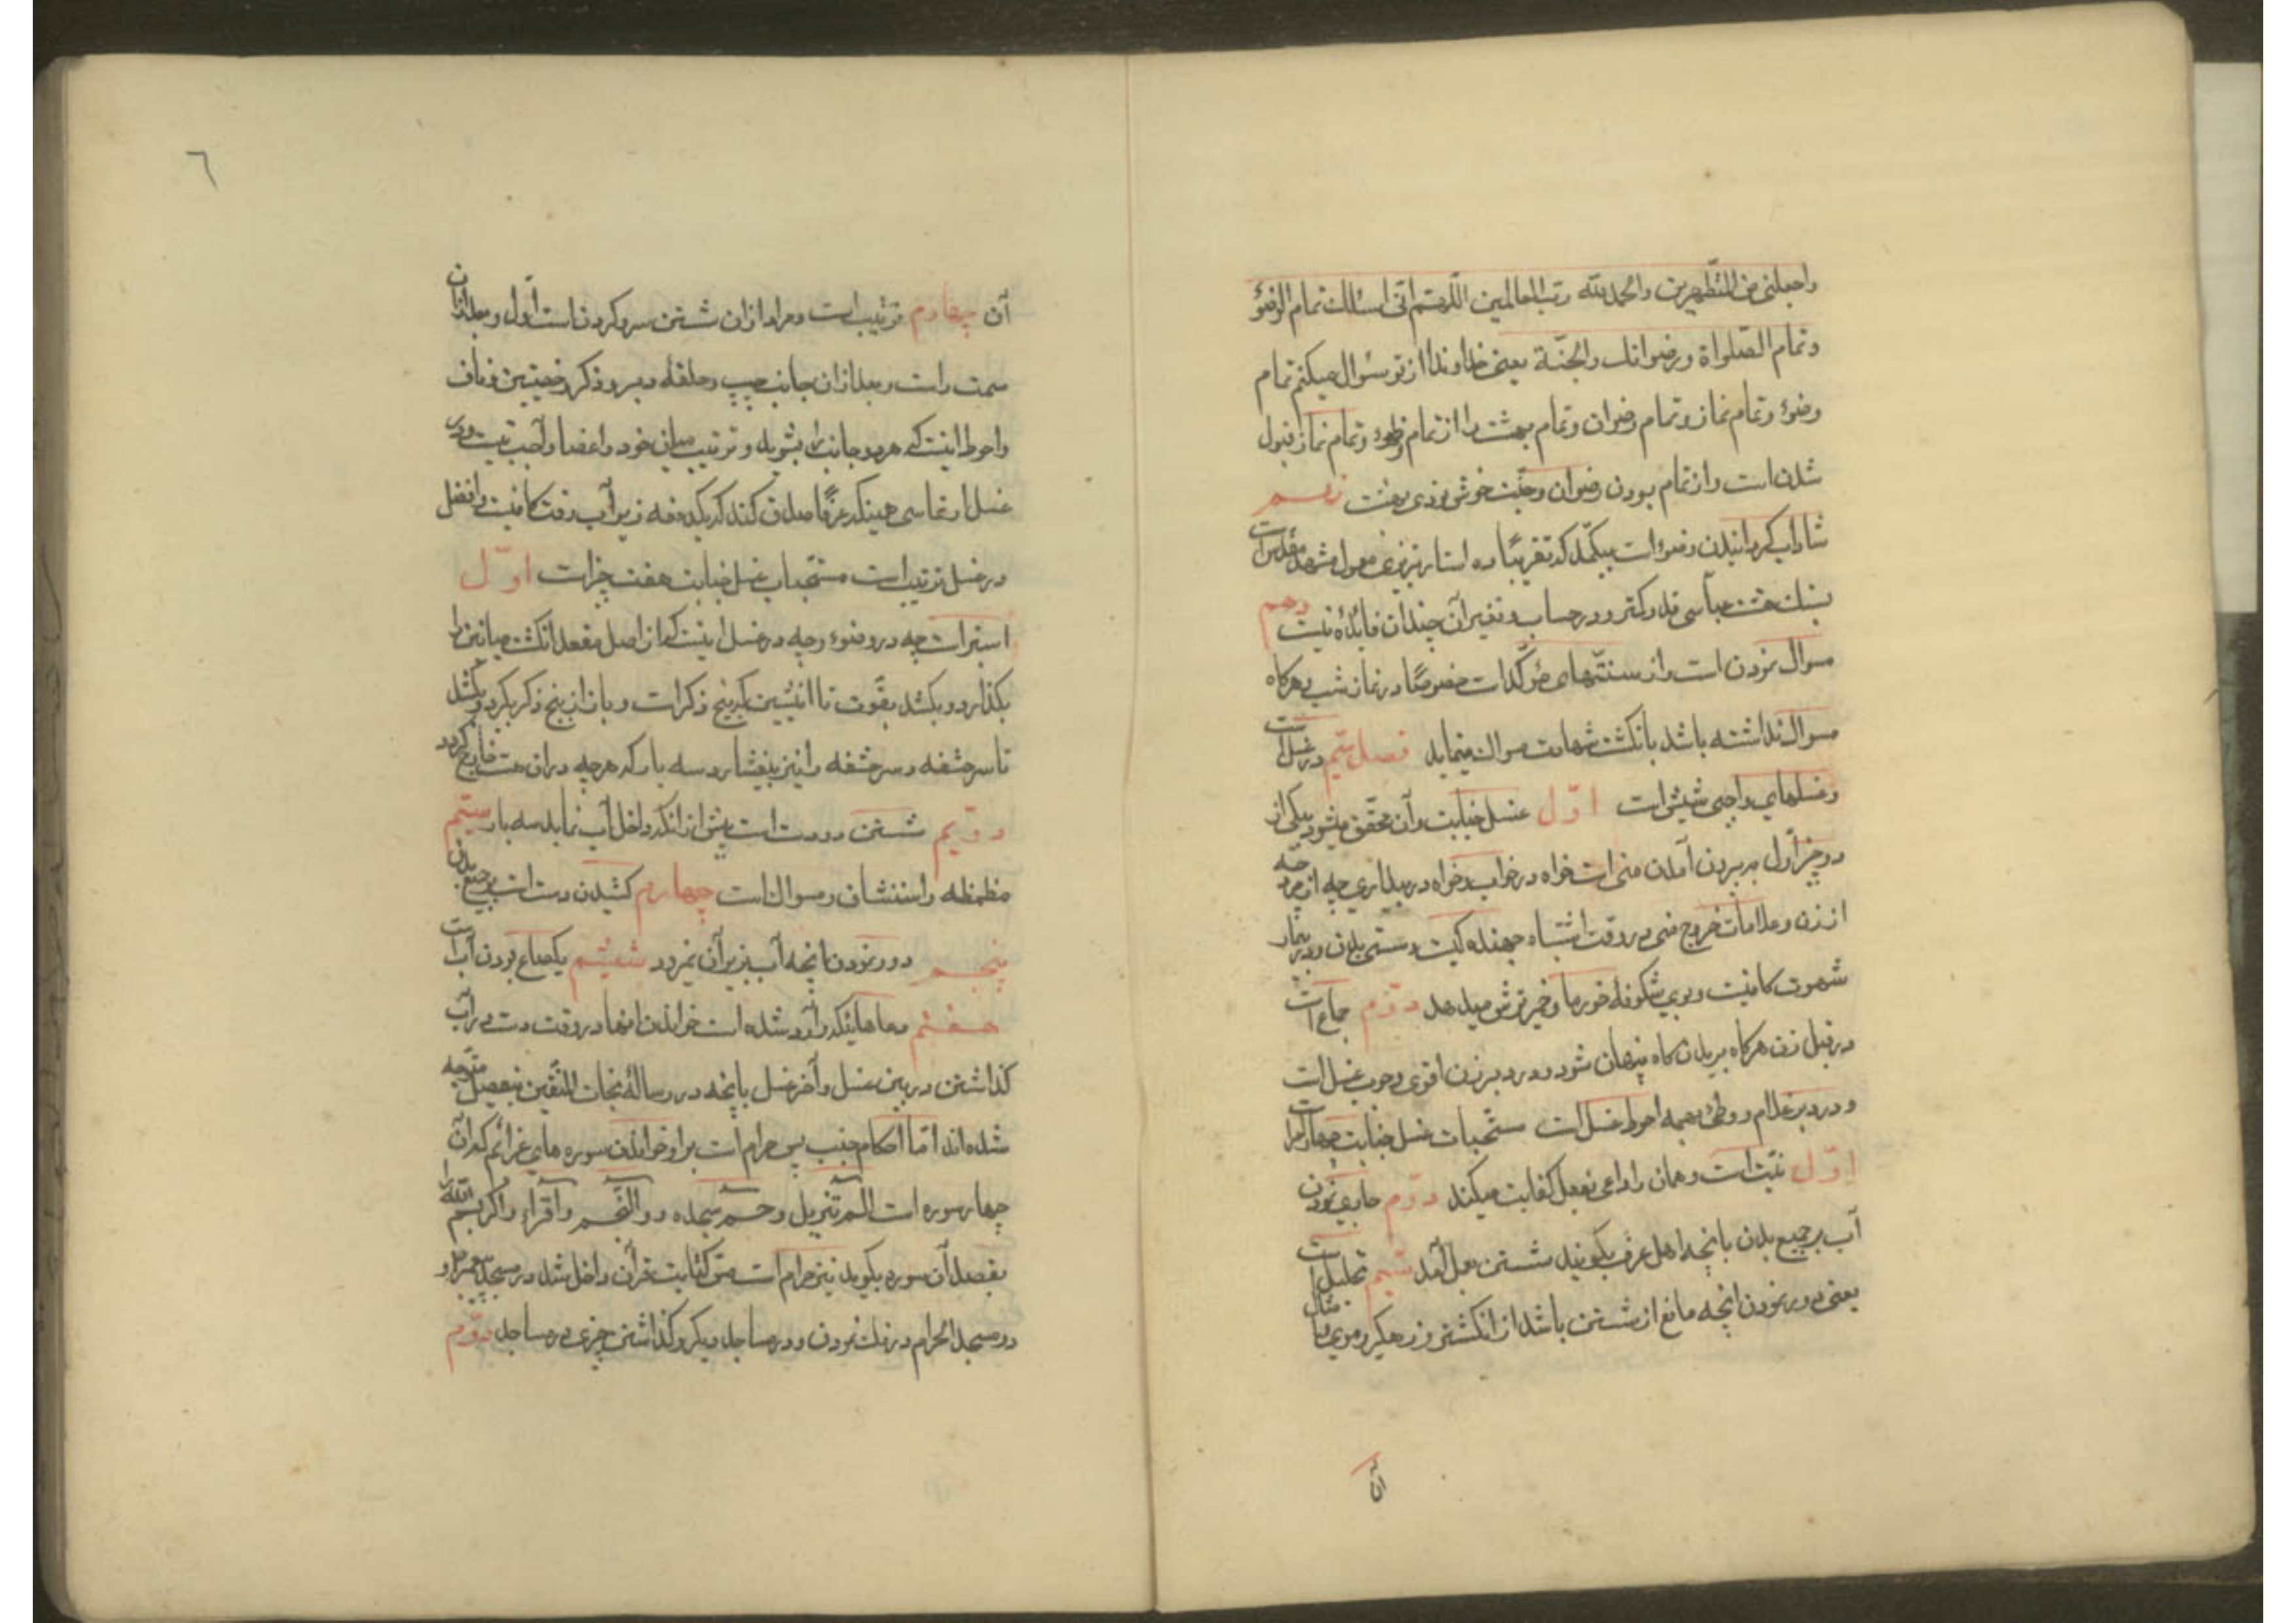 واجعلنی من المتطهرین والحمد لله رب العالمین اللهم انی اسئلک تمام الوضوء
وتمام الصلواة ورضوانک والجنة یعنی خداوندا از تو سئوال میکنم تمام
وضوء وتمام نماز وتمام رضوان وتمام بهشت را از تمام وضوء وتمام نماز قبول
شدن است واز تمام بودن رضوان وجنت خوشنودی بهشت نهم
شاداب کردانیدن وضوء است بیکمد که تقریبًا ده استار تبریزی معمول مشهد مقدس است
بسنک هشت عباسی قدر کمتر ودر حساب وتفیر آن چندان فائده نیست دهم
مسواک نمودن است واز سنتهای مؤکد است خصوصًا در نماز شب وهرکاه
مسواک نداشته باشد بانکشت شهادت مسواک مینماید فصل سیم در غسل است
وغسلهای واجبی شیش است اول غسل جنابت وآن محقق میشود بیکی از
دو چیز اول به بیرون آمدن منی است خواه در خواب وخواه در بیداری چه از مرد چه
از زن وعلامات خروج منی در وقت اشتباه جهنده کیت وسستی بدن ودر بیمار
شهوت کافیست وبوی شکوفهٔ خورما وخمیر ترش میدهد دوم جماع است
در قبل زن هرکاه بریدن کاه پنهان شود ودر دبر زن اقوی وجوب غسل است
ودر دبر غلام ووطئ بهیمه احوط غسل است مستحبات غسل جنابت چهار است
اول نیت است وهمان راداعی بفعل کفایت میکند دوم جاری نمودن
آب بر جمیع بدن بانچه اهل عرف بکویند شستن بعمل آمد سیم تخلیل است
یعنی دور نمودن انچه مانع از شستن باشد از انکشتر وزهکیر وموی مثال
آن
٦
آن چهارم ترتیب است ومراد ازان شستن سر وکردن است اول وبعد ازان
سمت راست وبعد ازان جانب چپ وحلقهٔ دبر وذکر وخصیتین وناف
واحوط اینست که هر دو جانب را بشوید وترتیب میان خود واعضا واجب نیست ودر
غسل ارتماسی همینکه عرفًا صدق کند که یکدفعه زیر آب رفت کافیست وافضل
در غسل ترتیب است مستحبات غسل جنابت هفت چیز است اول
استبراست چه در وضوء وچه در غسل اینست که از اصل مقعد انکشت میانین را
بکذارد وبکشد بقوت تا انثیین که بیخ ذکر است وباز از بیخ ذکر بکیرد وبکشد
تا سر حشفه وسر حشفه را نیز بیفشارد سه بار که هرچه در ان هست خارج کردد
دویم شستن دو دست است پیش از انکه داخل آب نماید سه بار سیم
مظمظه واستنشاق ومسواک است چهارم کشیدن دست است بر جمیع بدن
پنجم دور نمودن انچه آب بزیر آن نمیرود شیشم یکصاع بودن آب است
هفتم دعاهائیکه وارد شده است خواندن انها در وقت دست در آب
کذاشتن در بین غسل وآخر غسل بانچه در رسالهٔ نجات المتقین بتفصیل متوجه
شده اند اما احکام جنب پس حرام است بر او خواندن سوره های عزائم که ان
چهار سوره است الم تنزیل وحم سجده ووالنجم واقراء واکر بسم الله را
بقصد آن سوره بکوید نیز حرام است مس کتابت قرآن داخل شدن در مسجد پیغمبر و
در مسجد الحرام درنک نمودن ودر مساجد دیکر وکذاشتن چیزی در مساجد دوم